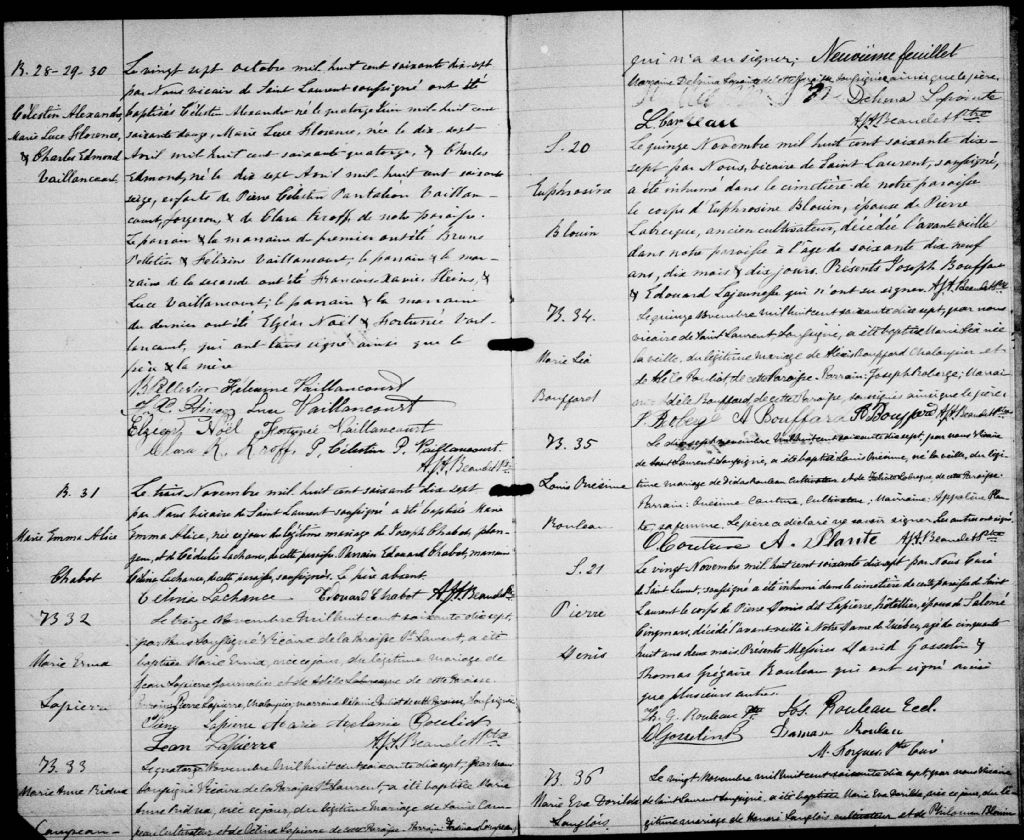 B. 28-29-30
Célestin Alexandre,
Marie Luce Florence,
& Charles Edmond
Vaillancourt
Le vingt sept octobre mil huit cent soixante dix-sept
par Nous vicaire de Saint Laurent soussigné ont été
baptisés Célestin Alexandre né le quatorze Juin mil huit cent
soixante douze, Marie Luce Florence, née le dix-sept
Avril mil huit cent soixante quatorze, & Charles
Edmond, né le dix sept Avril mil huit cent soixante
seize, enfants de Pierre Célestin Pantaléon Vaillan-
court, forgeron, & de Clara Kroff de notre paroisse.
Le parrain & la marraine du premier ont été Bruno
Pelletier & Vaillancourt, le parrain & la mar-
raine de la seconde ont été François-Xavier &
Luce Vaillancourt; le parrain & la marraine
du dernier ont été Elzéar Noël & Fortunée Vail-
lancourt, qui ont tous signé ainsi que le
père & la mère
B Pelletier Vaillancourt
Luce Vaillancourt
Elzear Noël Fortunée Vaillancourt
Clara R. Kroff, P. Célestin P. Vaillancourt
A.J.H. Beaudet Ptre
B. 31
Marie Emma Alice
Chabot
Le trois Novembre mil huit cent soixante dix sept
par Nous Vicaire de Saint Laurent soussigné a été baptisée Marie
Emma Alice, née ce jour du légitime mariage de Joseph Chabot,
et de Lachance, de cette paroisse. Parrain Edouard Chabot, marraine
Lachance, de cette paroisse, soussignés. Le père absent.
Lachance Edouard Chabot A.J.H. Beaudet Ptre
B 32
Marie Erma
Lapierre
Le treize Novembre mil huit cent soixante dix sept,
par Nous soussigné Vicaire de la Paroisse St Laurent, a été
baptisée Marie Erma, née ce jour, du légitime mariage de
Jean Lapierre Journalier et de Labrecque de cette Paroisse.
Parrain Pierre Lapierre, Chaloupier, marraine Pouliot de cette Paroisse soussignés
Lapierre Marie Pouliot
Jean Lapierre A.J.H. Beaudet Ptre
B. 33
Marie Anne
Novembre mil huit cent soixante dix sept, par nous
soussigné Vicaire de la Paroisse St Laurent, a été baptisée Marie
Anne née ce jour, du légitime Mariage de Louis
Cultivateur et de Lapierre de cette Paroisse. Parrain
qui n'a su signer; Neuvième feuillet
de cette Paroisse, soussignée ainsi que le père.
Delvina Lapointe
A.J.H. Beaudet Ptre
S. 20
Euphrosine
Blouin
Le quinze Novembre mil huit cent soixante dix-
sept par Nous, vicaire de Saint Laurent, soussigné,
a été inhumé dans le cimetière de notre paroisse
le corps d'Euphrosine Blouin, épouse de Pierre
Labrecque, ancien cultivateur, décédée l'avant veille
dans notre paroisse à l'âge de soixante dix neuf
ans, dix mois & dix jours. Présents Joseph Bouffard
& Edouard Lajeunesse qui n'ont su signer. A.J.H. Beaudet Ptre
B. 34.
Marie Léa
Bouffard
Le quinze Novembre mil huit cent soixante dix sept, par nous
vicaire de Saint Laurent, soussigné, a été baptisée Marie Léa née
la veille, du légitime mariage de Bouffard Chaloupier et
de Pouliot, de cette Paroisse. Parrain: Joseph Roberge; Marrai-
ne Adèle Bouffard, de cette Paroisse, soussignés ainsi que le père.
J. Roberge A Bouffard Bouffard A.J.H. Beaudet Ptre
B. 35
Louis Onésime
Rouleau
Le dix sept novembre mil huit cent soixante dix sept, par nous Vicaire
de Saint Laurent soussigné, a été baptisé Louis Onésime, né la veille, du légi-
time mariage de Rouleau Cultivateur et de Labrecque de cette Paroisse
Parrain: Onésime Couture Cultivateur, Marraine: Appoline Plan-
te sa femme. Le père a déclaré ne savoir signer. Les autres ont signé.
O Couture A. Plante A.J.H. Beaudet Ptre
S. 21
Pierre
Denis
Le vingt Novembre mil huit cent soixante dix sept par Nous Curé
de Saint Laurent, soussigné a été inhumé dans le cimetière de cette paroisse de Saint
Laurent le corps de Pierre Denis dit Lapierre, hôtellier, époux de Salomé
Cinqmars, décédé l'avant veille à Notre Dame de Québec, agé de cinquante
huit ans deux mois. Présents Messires David Gosselin &
Thomas Grégoire Rouleau qui ont signé ainsi
que plusieurs autres.
Th. G. Rouleau Ptre Jos. Rouleau Eccl.
D Gosselin Ptre Damase Rouleau
Ptre Curé
B. 36
Marie Eva Dorilda
Langlois
Le vingt Novembre mil huit cent soixante dix sept, par nous Vicaire
de Saint Laurent soussigné, a été baptisée Marie Eva Dorilda, née ce jour, du lé-
gitime mariage de Honoré Langlois cultivateur, et de Philomène